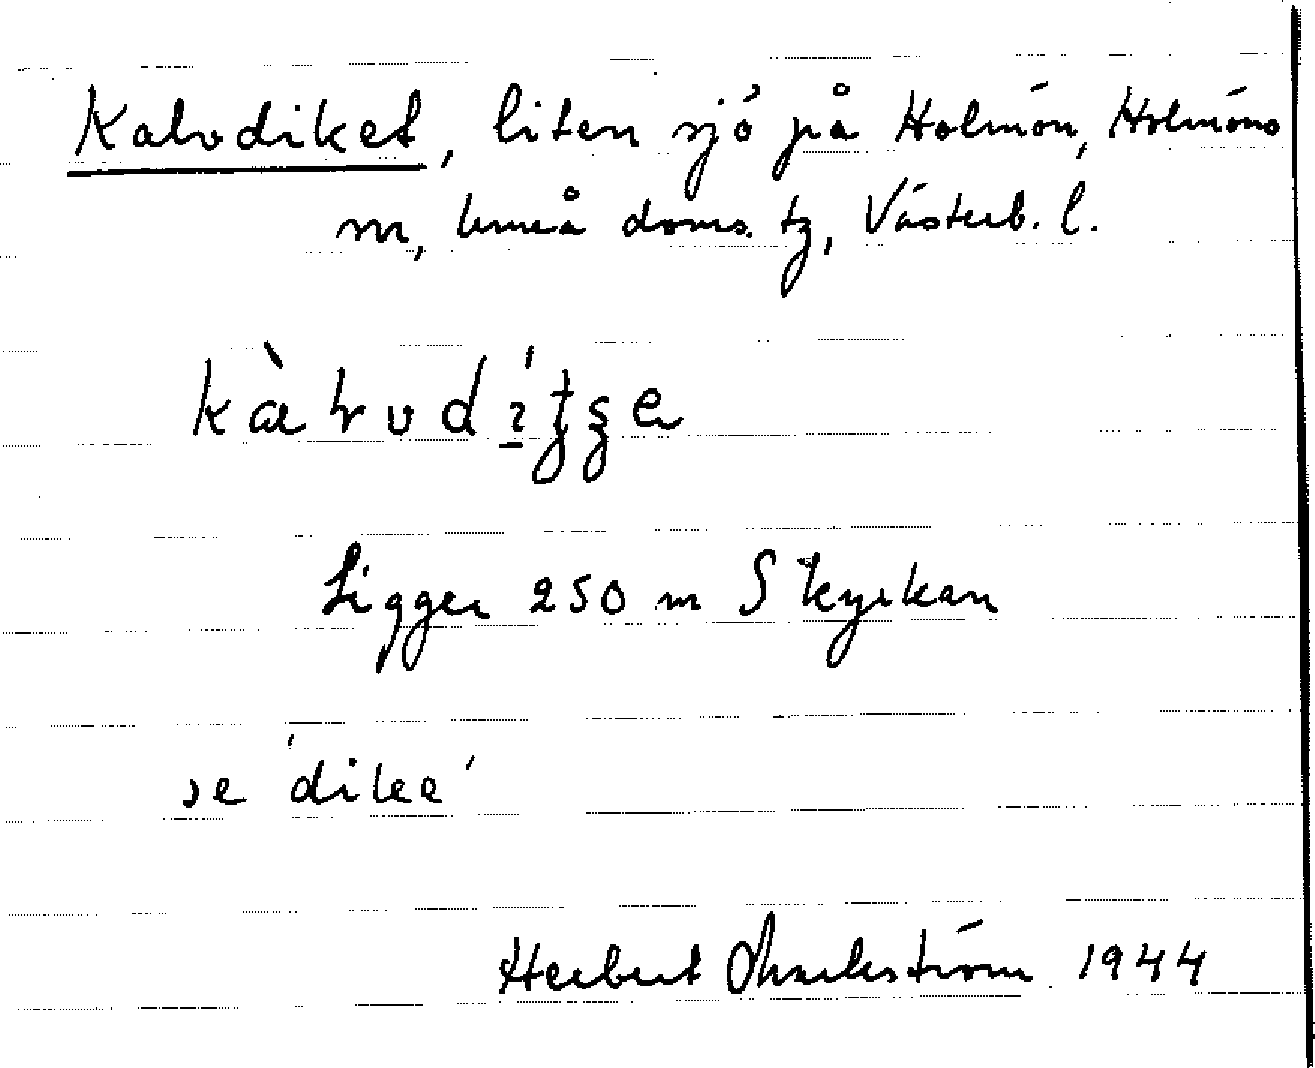 Kalvdiket, liten sjö på Holmön, Holmöns
sn, Umeå doms. tg, Västerb. l.
Ligger 250 m S kyrkan
se 'dike'
Herbert 1944